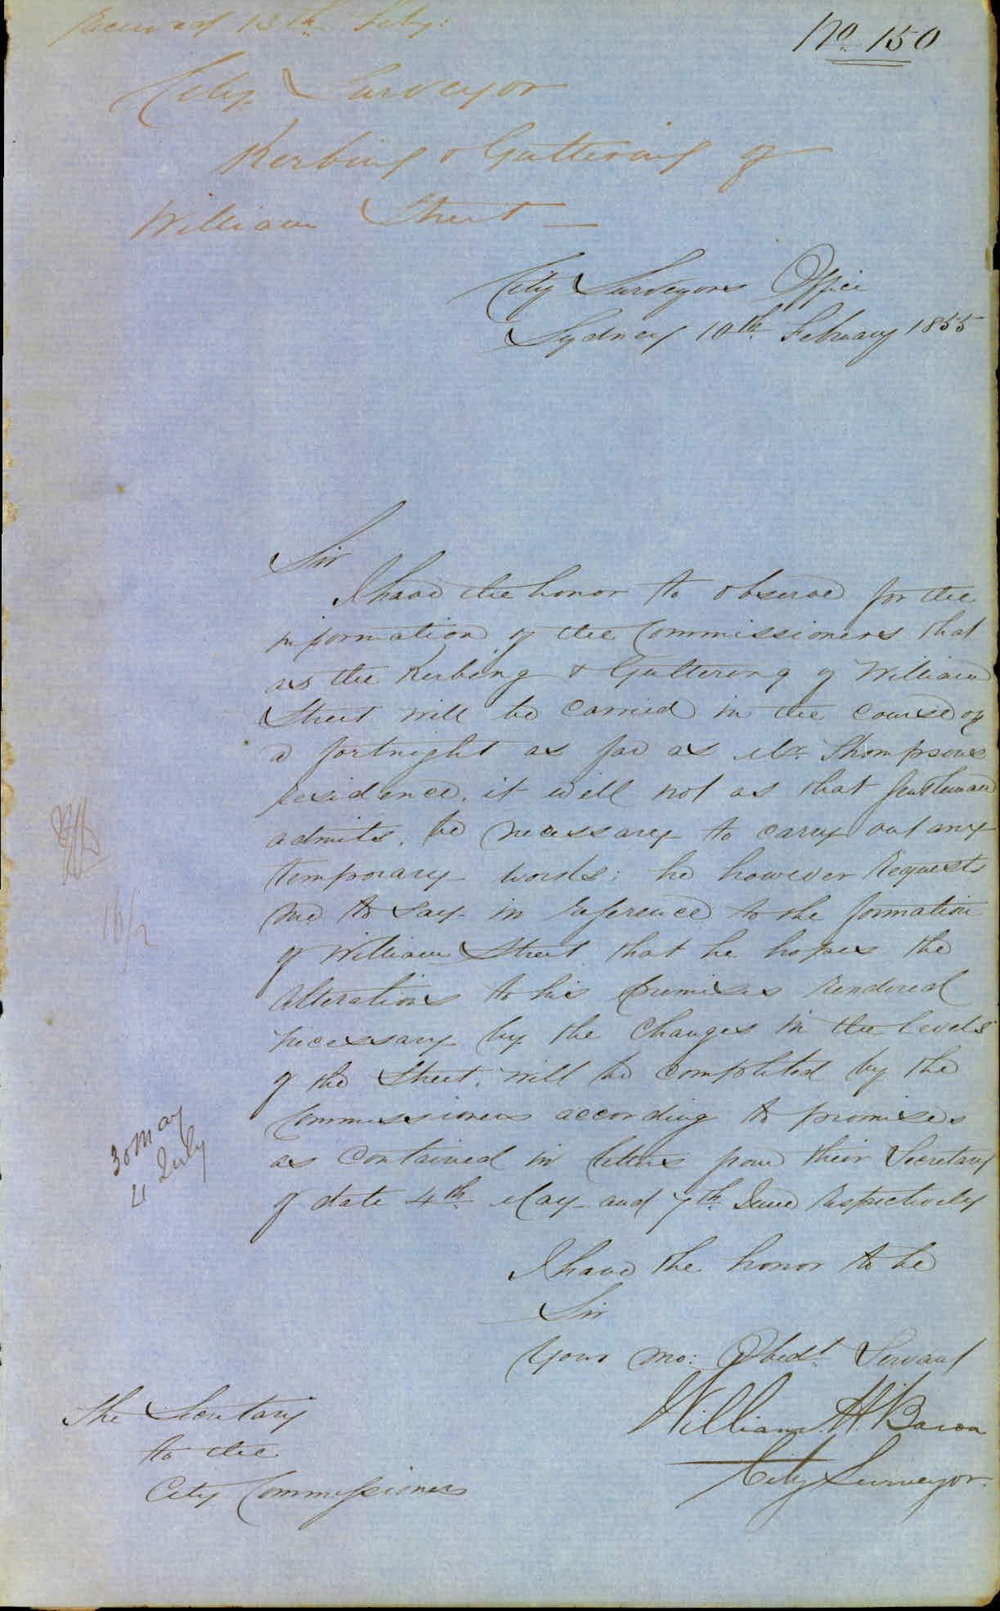 Received 13th Feby:
No. 150
City Surveyor
Kerbing & Guttering of
William Street —
City Surveyors Office
Sydney 10th. February 1855
Sir
I have the honor to observe for the
information of the Commissioners that
as the Kerbing & Guttering of William
Street will be carried in the course of
a fortnight as far as Mr. Thompsons
residence, it will not as that gentleman
admits, be necessary to carry out any
temporary works; he however requests
me to say in reference to the formation
of William Street that he hopes the
alterations to his premises rendered
necessary by the changes in the levels
of the Street, will be completed by the
Commissioners according to promises
as contained in letters from their Secretary
of date 4th. May and 7th. June respectively
I have the honor to be
Sir
Your mo: Obedt. Servant
William H. Bacon
City Surveyor.
The Secretary
to the
City Commissioners
16/2
30 May
4 July